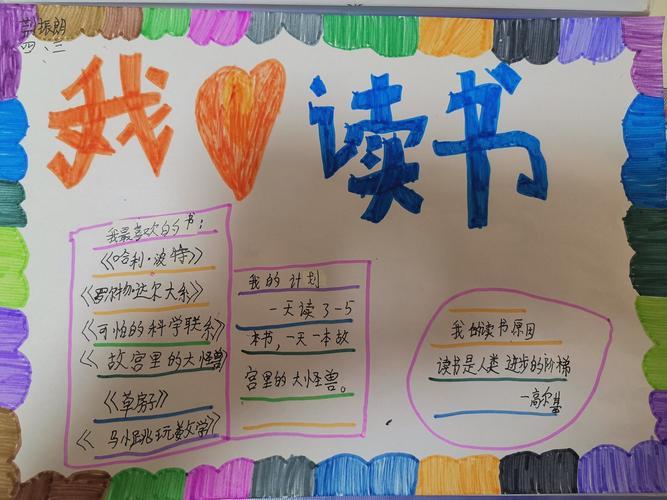 振朗
四、三
我 读书
我最喜欢的书：
《哈利·波特》
《罗尔物·达尔大系》
《可怕的科学联系》
《故宫里的大怪兽》
《草房子》
《马小跳玩美文学》
我的计划
一天读3-5
本书，一天一本故
宫里的大怪兽。
我的读书原因
读书是人类进步的阶梯
—高尔基